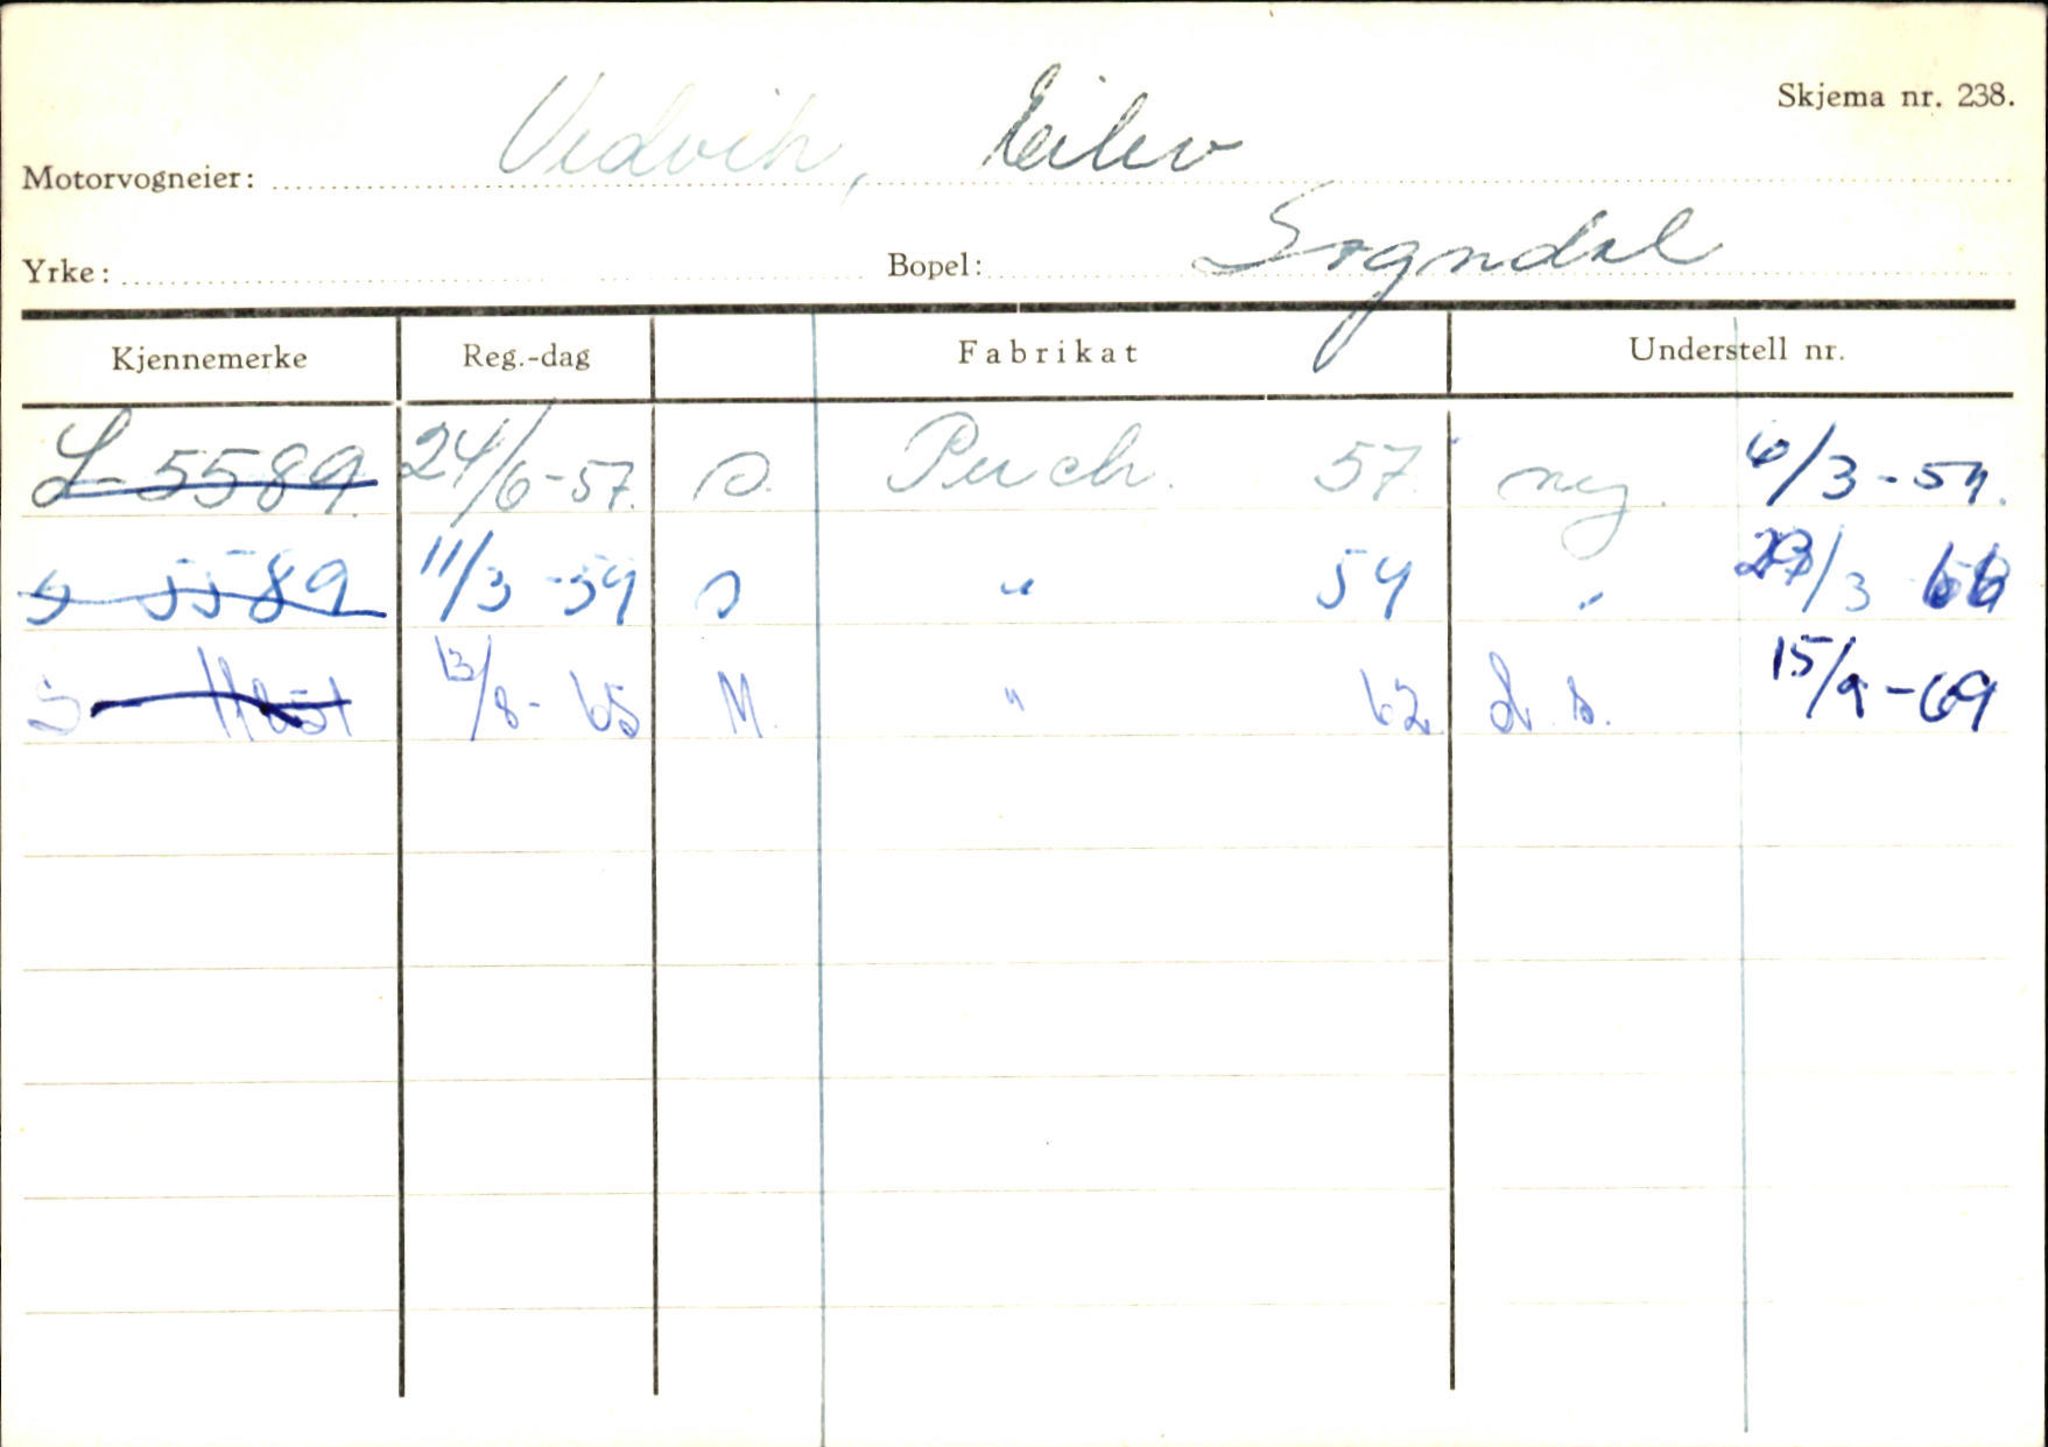 Skjema nr. 238.
Motorvogneier: Vedvik, Eilev
Yrke: Bopel: Sogndal
Kjennemerke Reg.-dag Fabrikat Understell nr.
S-5589 24/6-57. s. Puch. 57. ny. 6/3-59.
S 5589 11/3-59 s " 59 " /3 66
S- 13/8-65 M. " 62 d.s. 15/9-69